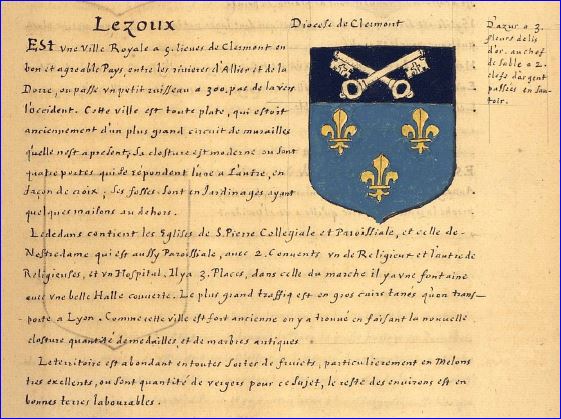 Lezoux
Diocese de Clermont
Est vne Ville Royale a 5. lieues de Clermont en
bon et agreable Pays, entre les rivieres d'Allier et de la
Dorre, ou passe vn petit ruisseau a 300. pas de la vers
l'occident. Cette ville est toute plate, qui estoit
anciennement d'un plus grand circuit de murailles
qu'elle n'est apresent, sa closture est moderne ou sont
quatre portes qui se repondent l'une a l'autre, en
façon de croix; ses fosses sont en Jardinages ayant
quelques maisons au dehors.
Le dedans contient les Eglises de S. Pierre Collegiale et Paroissiale, et celle de
Nostredame qui est aussy Paroissiale, avec 2. Convents vn de Religieux et l'autre de
Religieuses, et vn Hospital. Il y a 3. Places, dans celle du marche il y a vne fontaine
avec vne belle Halle couverte. Le plus grand traffiq est en gros cuirs tanés qu'on trans-
porte a Lyon. Comme cette ville est fort ancienne on y a trouué en faisant la nouuelle
closture quantité de medailles, et de marbres antiques
Le territoire est abondant en toutes sortes de fruicts, particulierement en Melons
tres exellents, ou sont quantité de vergers pour ce sujet, le reste des environs est en
bonnes terres labourables.
D'azur a 3.
fleurs de lis
d'or. au chef
de sable a 2.
clefs d'argent
passées en sau-
toir.